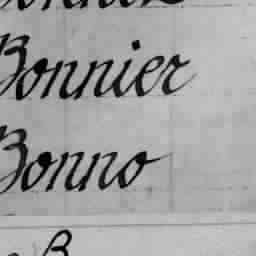 Bonnier
Bonno
B